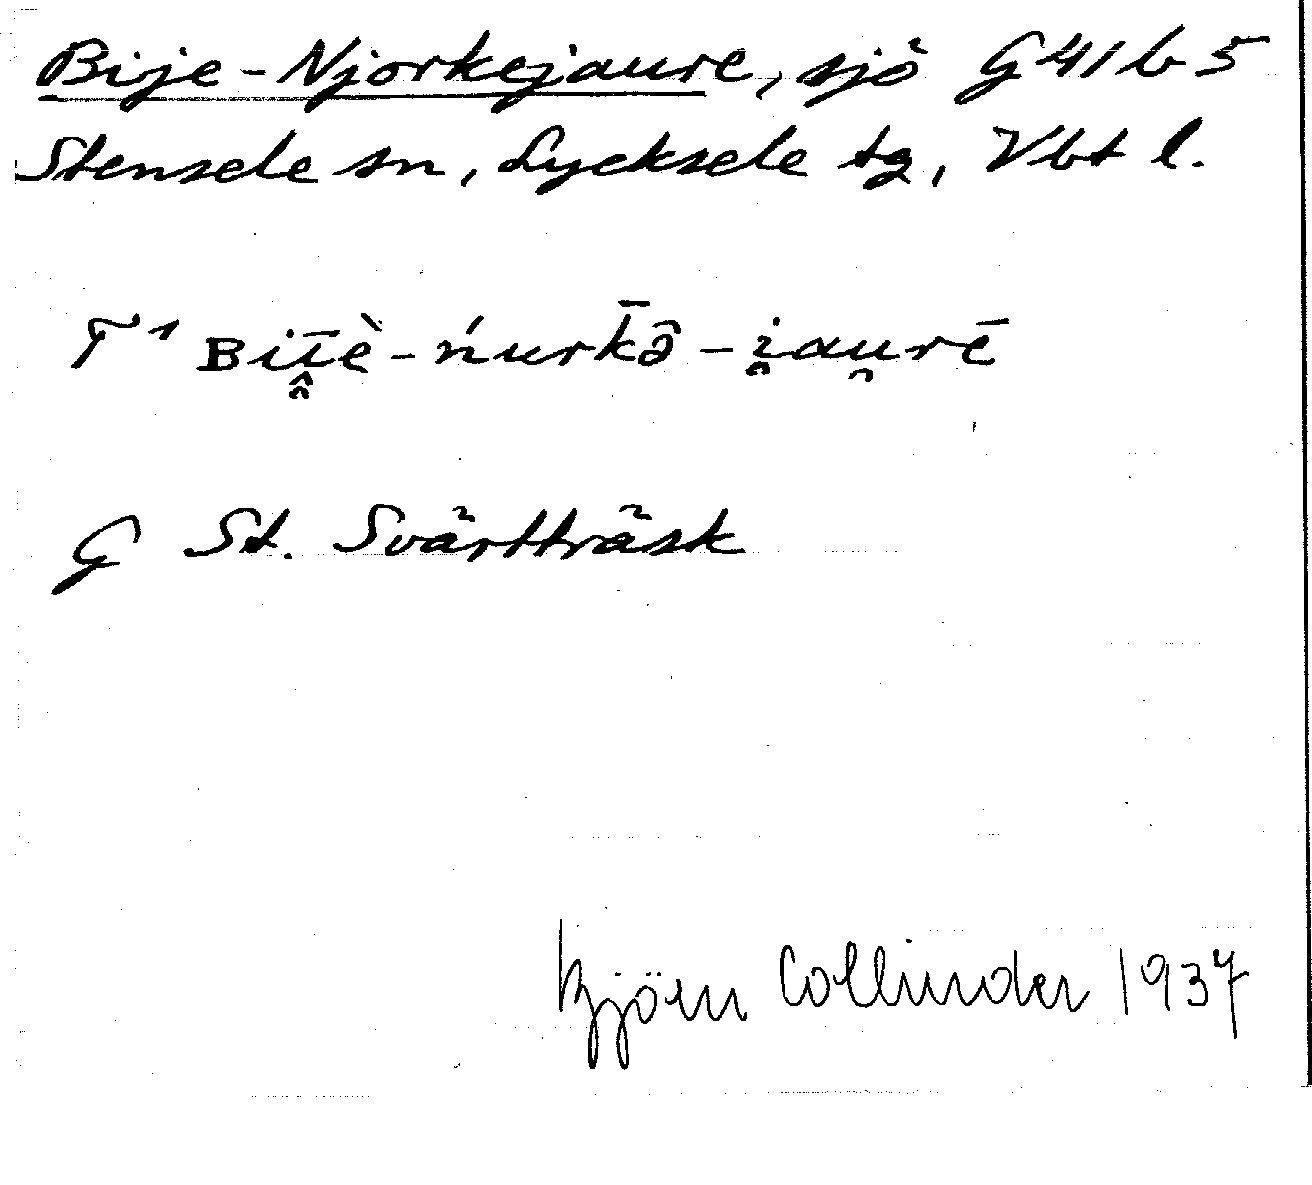 Bije-Njorkejaure, sjö G41b5
Stensele sn, Lycksele tg, Vbt l.
T¹ Biī̭è-ńurk̄ə̑-i̯au̯rē
G St. Svärtträsk
Björn Collinder 1937